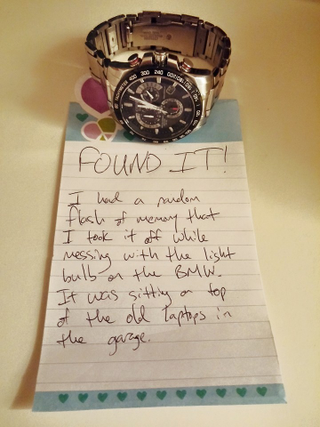 FOUND IT!
I had a random
flash of memory that
I took it off while
messing with the light
bulb on the BMW.
It was sitting on top
of the old laptops in
the garage.